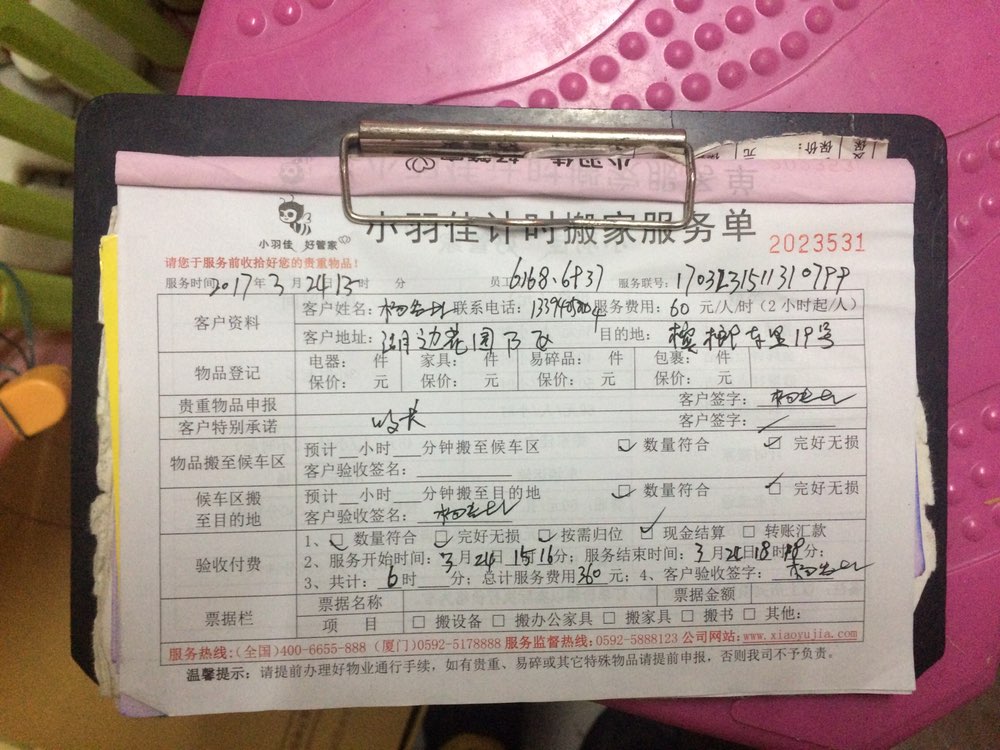 小羽佳 好管家
小羽佳计时搬家服务单
2023531
请您于服务前收拾好您的贵重物品!
服务时间 2017年3月24日15时 分 员工 6168、6937 服务联号:
客户资料
客户姓名: 联系电话: 服务费用: 60 元/人/时(2小时起/人)
客户地址: 湖边花园 目的地: 里19号
物品登记
电器: 件 家具: 件 易碎品: 件 包裹: 件
保价: 元 保价: 元 保价: 元 保价: 元
贵重物品申报 客户签字:
客户特别承诺 客户签字:
物品搬至候车区
预计__小时___分钟搬至候车区 □ 数量符合 □ 完好无损
客户验收签名:
候车区搬至目的地
预计__小时___分钟搬至目的地 □ 数量符合 □ 完好无损
客户验收签名:
验收付费
1、□ 数量符合 □ 完好无损 □ 按需归位 □ 现金结算 □ 转账汇款
2、服务开始时间:3月24日15时16分;服务结束时间:3月24日18时18分;
3、共计:6时 分;总计服务费用360元;4、客户验收签字:
票据栏
票据名称 票据金额
项 目 □ 搬设备 □ 搬办公家具 □ 搬家具 □ 搬书 □ 其他:
服务热线:(全国)400-6655-888 (厦门)0592-5178888 服务监督热线:0592-5888123 公司网站:www.xiaoyujia.com
温馨提示:请提前办理好物业通行手续,如有贵重、易碎或其它特殊物品请提前申报,否则我司不予负责。